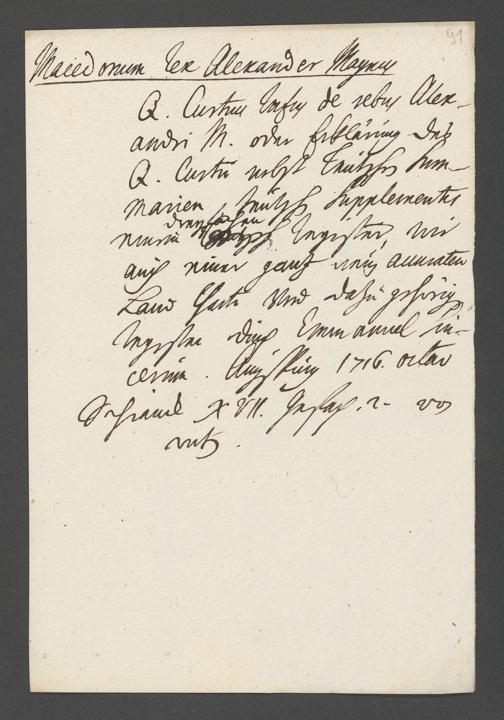 91
Macedonum Rex Alexander Magnus
Q. Curtius Rufus de rebus Alex-
andri M. oder Erklärung des
Q. Curtii nebst Teutschen Sum-
marien, Teutsch Supplementis
einem dreyfachen Register, wie
auch einer gantz neuen accuraten
Land Charte und dazu gehörig
Register durch Emmanuel Sin-
cerum. Augspurg 1716. octav
Schranck XVII. 2.